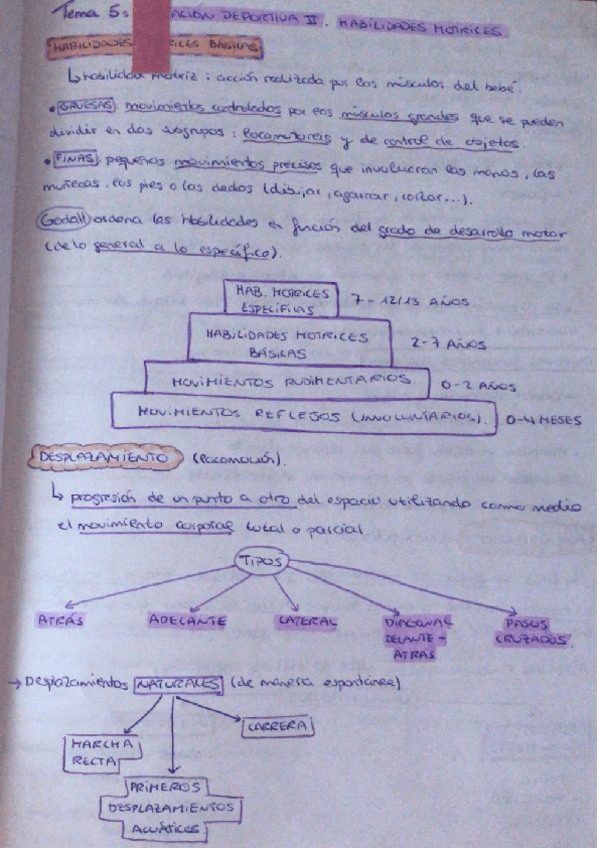 Tema 5: ACIÓN DEPORTIVA II. HABILIDADES MOTRICES
HABILIDADES RICES BÁSICAS
↳ habilidad motriz: acción realizada por los músculos del bebé.
• GRUESAS: movimientos controlados por los músculos grandes que se pueden
dividir en dos subgrupos: locomotoras y de control de objetos
• FINAS: pequeños movimientos precisos que involucran las manos, las
muñecas, los pies o los dedos (dibujar, agarrar, cortar...).
Godall ordena las habilidades en función del grado de desarrollo motor
(de lo general a lo específico).
HAB. MOTRICES
ESPECÍFICAS 7-12/13 AÑOS
HABILIDADES MOTRICES
BÁSICAS 2-7 AÑOS
MOVIMIENTOS RUDIMENTARIOS 0-2 AÑOS
MOVIMIENTOS REFLEJOS (INVOLUNTARIOS). 0-4 MESES
DESPLAZAMIENTO (locomoción).
↳ progresión de un punto a otro del espacio utilizando como medio
el movimiento corporal total o parcial
TIPOS
ATRÁS ADELANTE LATERAL DIAGONAL PASOS
DELANTE- CRUZADOS.
ATRÁS
→ Desplazamientos NATURALES (de manera espontánea)
CARRERA
MARCHA
RECTA
PRIMEROS
DESPLAZAMIENTOS
ACUÁTICOS